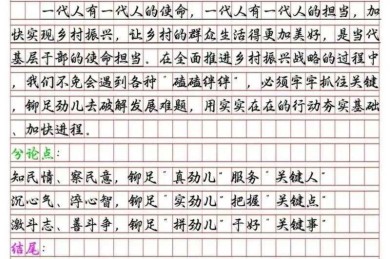 一代人有一代人的使命，一代人有一代人的担当，加
快实现乡村振兴，让乡村的群众生活得更加美好，是当代
基层干部的使命担当．在全面推进乡村振兴战略的过程中
，我们不免会遇到各种“磕磕绊绊”，必须牢牢抓住关键
，铆足劲儿去破解发展难题，用实实在在的行动夯实基础
、加快进程。
分论点：
知民情、察民意，铆足“真劲儿”服务“关键人”
沉心气、淬心智，铆足“实劲儿”把握“关键点”
激斗志、善斗争，铆足“拼劲儿”干好“关键事”
结尾：